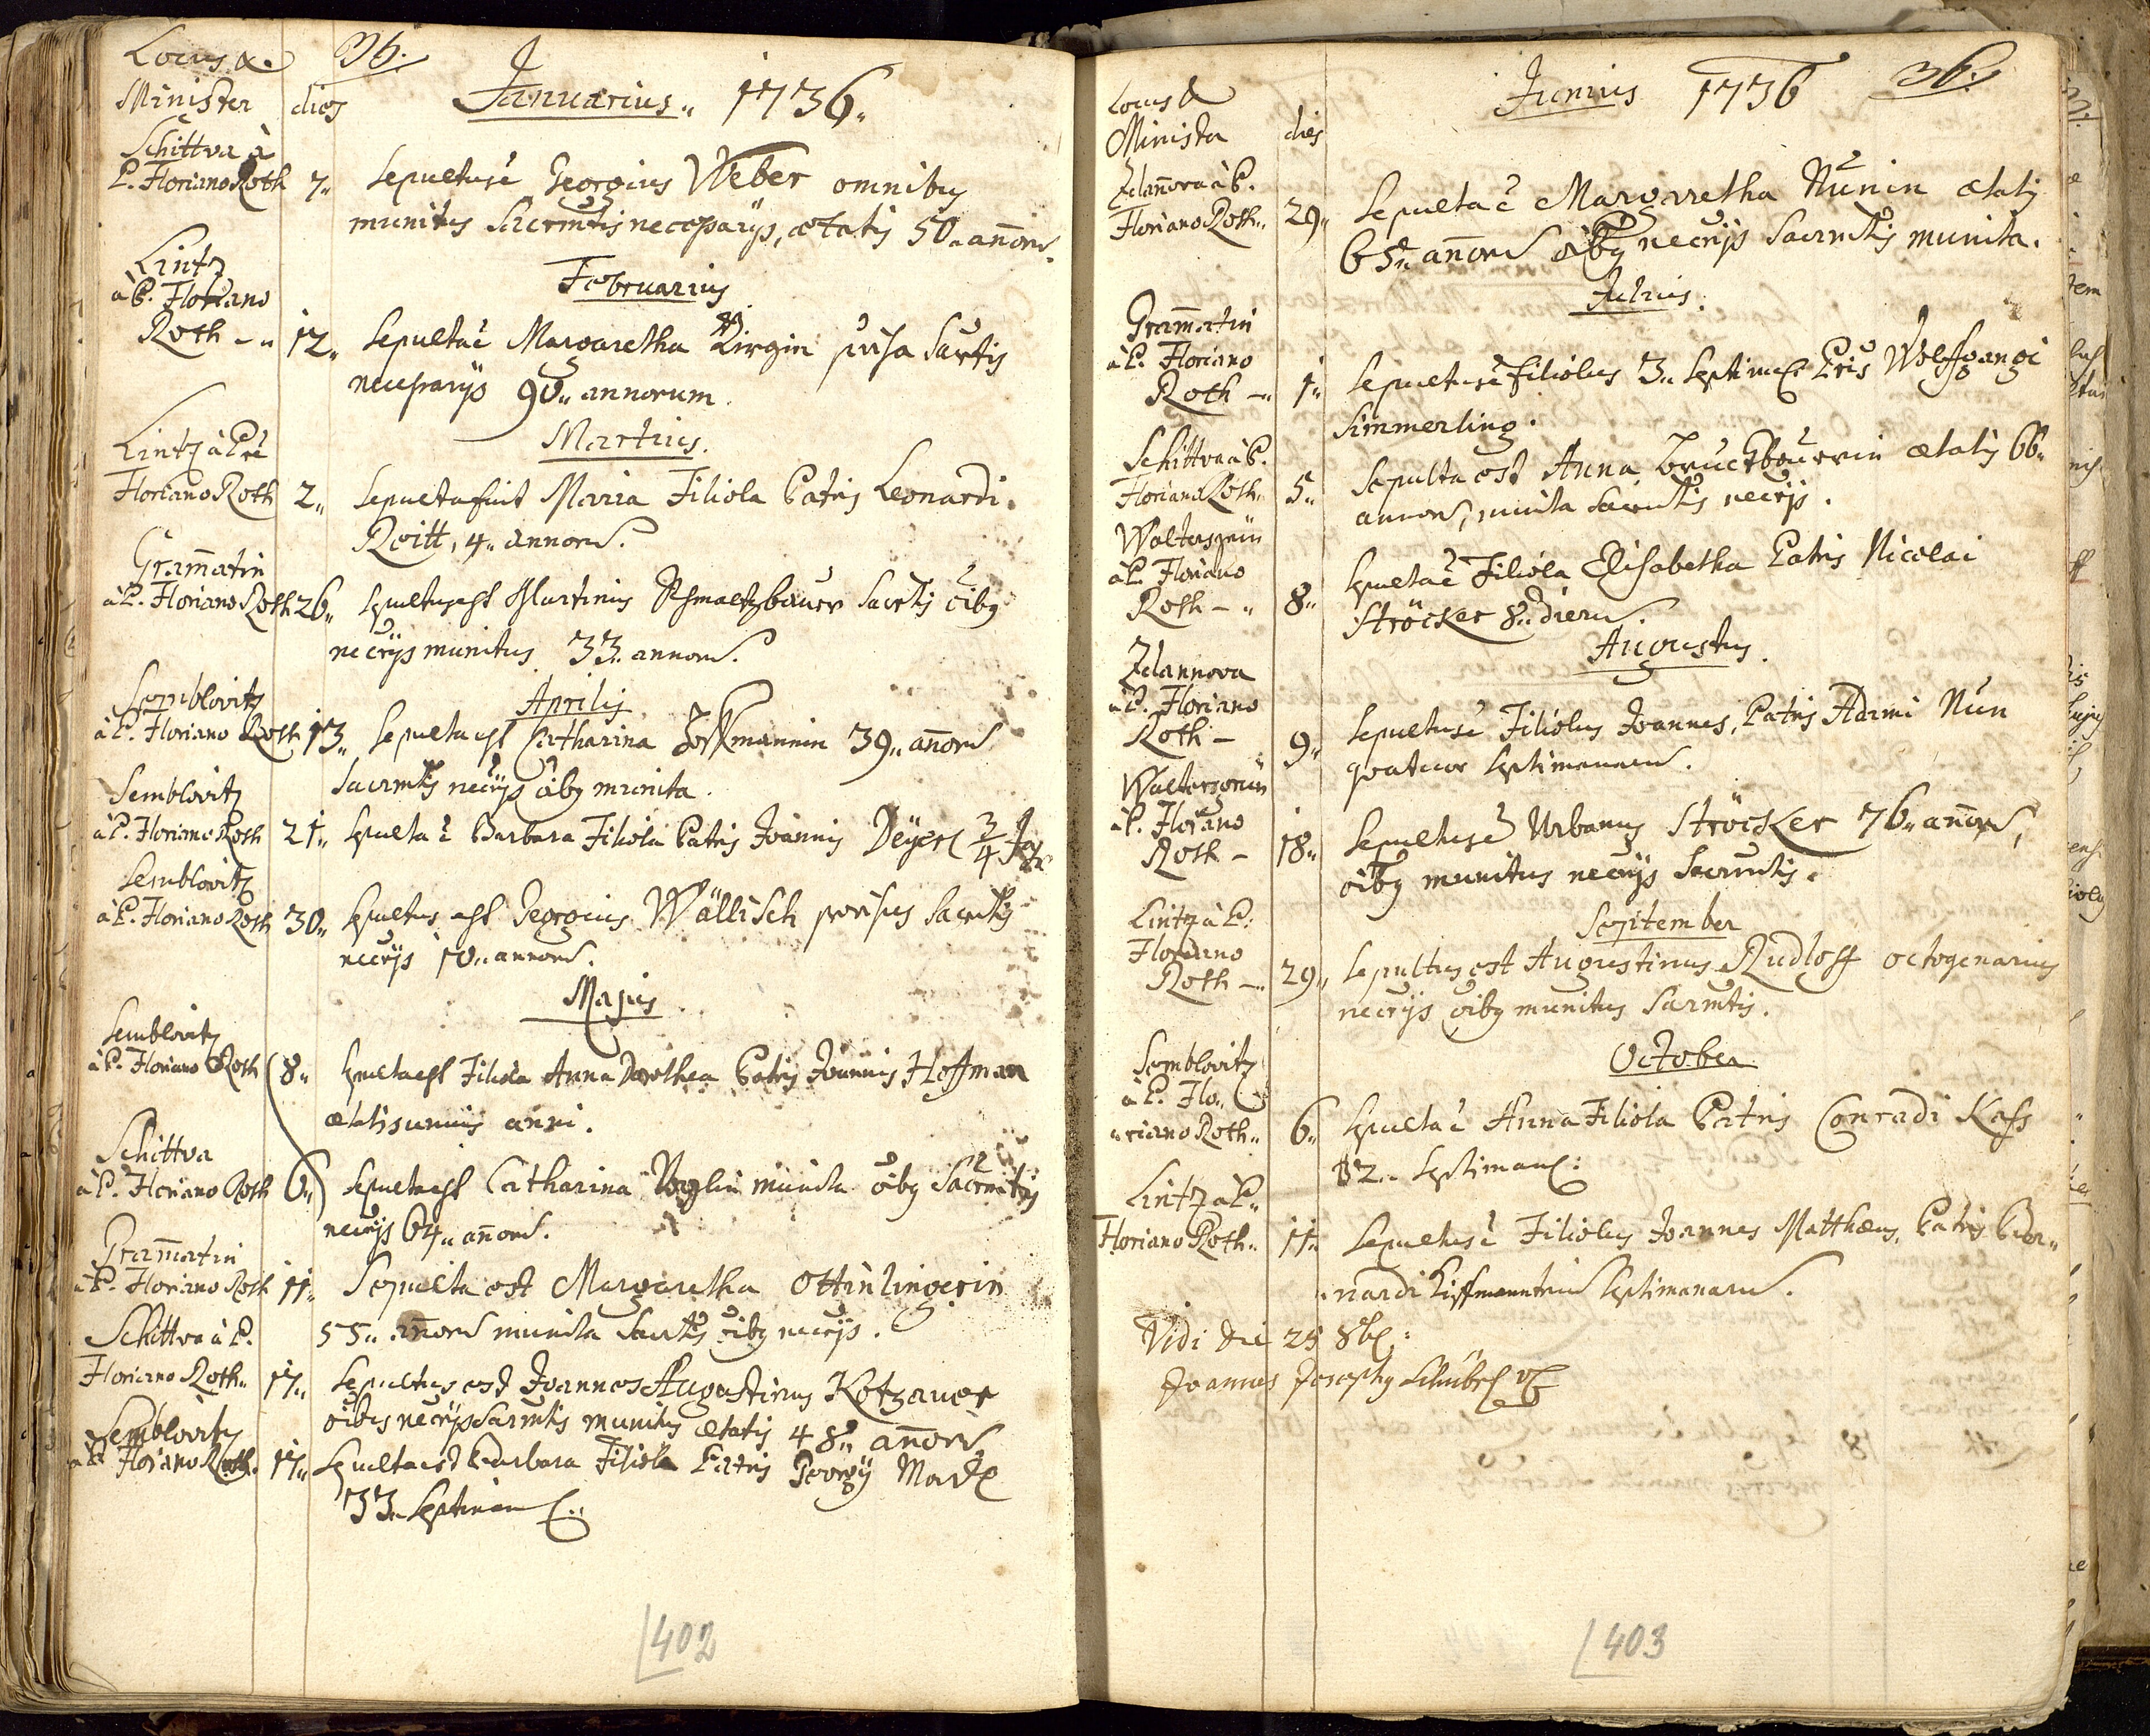 Locus & 36.
Minister dies Januarius 1736
Schittva à
P. Floriano Roth 7 Sepultus ē Georgius Weber omnibus
munitus Sacrmtis necessarijs, ætatis 50 anñor.
Lintz
à P. Floriano
Februarius
Roth 12 Sepulta ē Margaretha Kirgin
necessarijs 90 annorum.
Martius.
Lintz à P.
Floriano Roth 2 Sepulta fuit Maria Filiola Patris Leonardi
Roitt, 4 annor.
Gram̄atin
à P. Floriano Roth 26 Sepultus est Martinus Schmaltzbauer Sacrtis oibus
necrijs munitus 33 annor.
Semblovitz
Aprilis
à P. Floriano Roth 13 Sepulta est Catharina 39 an̄or
Sacrmtis necrijs oibus munita.
Semblovitz
à P. Floriano Roth 21 Sepulta ē Barbara Filiola Patris Joannis Deyerl 3/4
Semblovitz
à P. Floriano Roth 30 Sepultus est Georgius Wällisch provisus Sacrtis
necrijs 70 annor.
Majus
Semblovitz
à P. Floriano Roth 8 Sepulta est Filiola Anna Dorothea Patris Joannis Hoffman
ætatis unius anni.
Schittva
à P. Floriano Roth 6 Sepulta est Catharina Voglin munita oibus Sacrmtis
necrijs 64 an̄or.
Gram̄atin
à P. Floriano Roth 11 Sepulta est Margaretha Ottinlingerin
Schittva à P. 55 an̄or munita Sacrtis oibus necrijs.
Floriano Roth 17 Sepultus est Joannes Augustinus Kotzauer
oibus necrijs Sacrmtis munitus ætatis 48 an̄or
Semblovitz
à P. Floriano Roth 17 Sepulta est Barbara Filiola Patris Georgij
33 Septiman
402
Locus & Junius 1736 36.
Minister dies
Zdan̄ova à P.
Floriano Roth 29 Sepulta ē Margaretha Nünin ætatis
65 an̄or oibus necrijs Sacrmtis munita.
Julius.
Gram̄atin
à P. Floriano
Roth 1 Sepultus ē Filiolus 3 Septima Pris Wolffgangi
Simmerling.
Schittva à P.
Floriano Roth 5 Sepulta est Anna Bruckbäuerin ætatis 66
annor, munita Sacrmtis necrijs.
Waltersgrün
à P. Floriano
Roth 8 Sepulta ē Filiola Elisabetha Patris Nicolai
Ströcker 8 dieru.
Augustus.
Zdannova
à P. Floriano
Roth 9 Sepultus ē Filiolus Joannes, Patris Adami Nün
quatuor septimanaru.
Waltersgrün
à P. Floriano
Roth 18 Sepultus ē Urbanus Ströcker 76 an̄or,
oibus munitus necrijs Sacrmtis.
Lintz à P.
September
Floriano
Roth 29 Sepultus est Augustinus Rudloff octogenarius
necrijs oibus munitus Sacrmtis.
October
Semblovitz
à P. Flo
riano Roth 6 Sepulta ē Anna Filiola Patris Conradi Kass
Septiman:
Lintz à P.
Floriano Roth 11 Sepultus ē Filiolus Joannes Matthæus, Patris Ber
nardi septimanaru.
Vidi die 25 8b:
Joannes Josephus
403